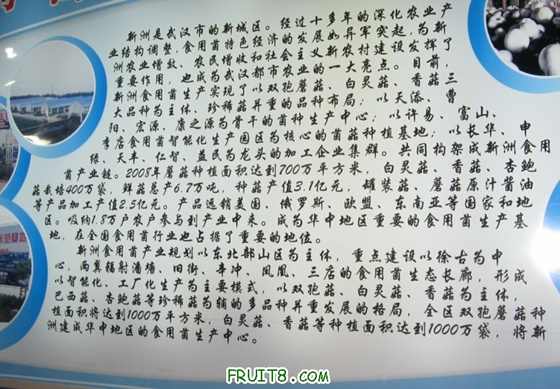 新洲是武汉市的新城区。经过十多年的深化农业产
业结构调整，食用菌特色经济的发展如异军突起，为新
洲农业增效、农民增收和社会主义新农村建设发挥了
重要作用，也成为武汉都市农业的一大亮点。目前，
新洲食用菌生产实现了以双孢蘑菇、白灵菇、香菇三
大品种为主体，珍稀菇并重的品种布局；以天添、曹
阳、宏源、康之源为骨干的菌种生产中心；以许易、富山、
李店食用菌智能化生产园区为核心的菌菇种植基地；以长华、申
绿、天丰、仁智、益民为龙头的加工企业集群。共同构架成新洲食用
菌产业链。2008年蘑菇种植面积达到700万平方米，白灵菇、香菇、杏鲍
菇栽培400万袋，鲜菇总产6.7万吨，种菇产值3.1亿元，罐装菇、蘑菇原汁酱油
等产品加工产值2.5亿元。产品远销美国、俄罗斯、欧盟、东南亚等国家和地
区。吸纳1.8万户农户参与到产业中来。成为华中地区重要的食用菌生产基
地，在全国食用菌行业也占据了重要的地位。
新洲食用菌产业规划以东北部山区为主体，重点建设以徐古为中
心，两翼辐射潘塘、旧街、辛冲、凤凰、三店的食用菌生态长廊，形成
以智能化、工厂化生产为主要模式，以双孢菇、白灵菇、香菇为主体，
巴西菇、杏鲍菇等珍稀菇为辅的多品种并重发展的格局，全区双孢蘑菇种
植面积将达到1000万平方米，白灵菇、香菇等种植面积达到1000万袋，将新
洲建成华中地区的食用菌生产中心。
FRUIT8.COM